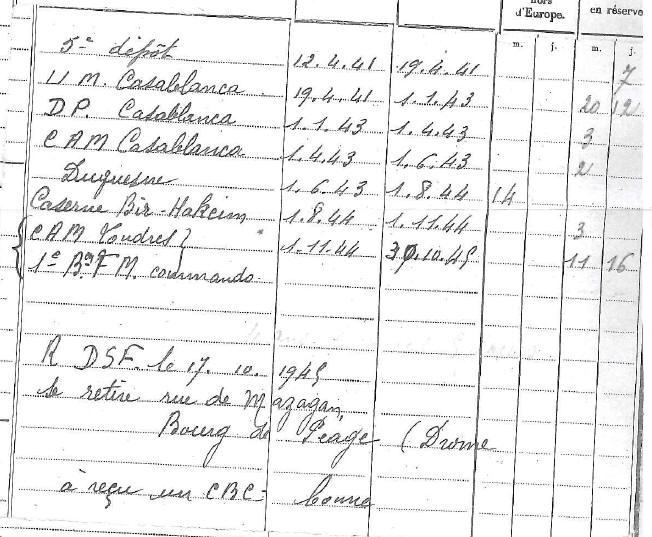 hors
d'Europe. en réserve
m. j. m. j.
5e dépôt 12.4.41 19.4.41 7
U M. Casablanca 19.4.41 1.1.43 20 12
DP. Casablanca 1.1.43 1.4.43 3
C A M Casablanca 1.4.43 1.6.43 2
Duquesne 1.6.43 1.8.44 14
Caserne Bir-Hakeim 1.8.44 1.11.44 3
CAM Londres 1.11.44 10.45 11 16
1e B. F M. commando
R DSF. le 17. 10. 1945
se retire rue de Mazagan,
Bourg de Péage (Drome
à reçu un CBC- bonne